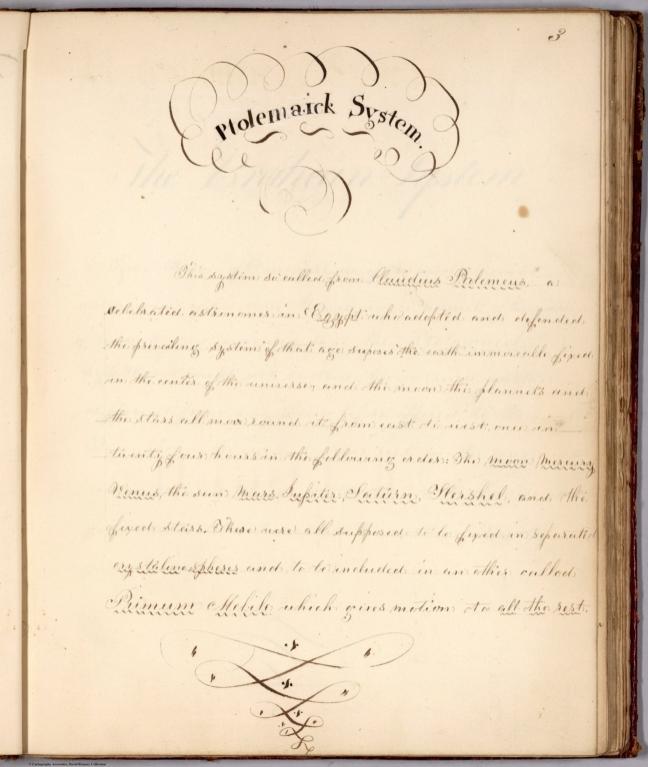 3
Ptolemaick System.
This system so called from Claudius Ptolemeus a
celebrated astronomer in Egypt who adopted and defended
the prevailing system of that age suposes the earth immovable fixed
in the center of the universe, and the moon the plannets and
the stars all move round it from east to west once in
twenty four hours in the following order: The moon Mercury
Venus, the sun Mars Jupiter, Saturn, Hershel, and the
fixed stars. These were all supposed to be fixed in separate
crystaline spheres and to be included in an other called
Primum Mobile which gives motion to all the rest.
© Cartography Associates, David Rumsey Collection